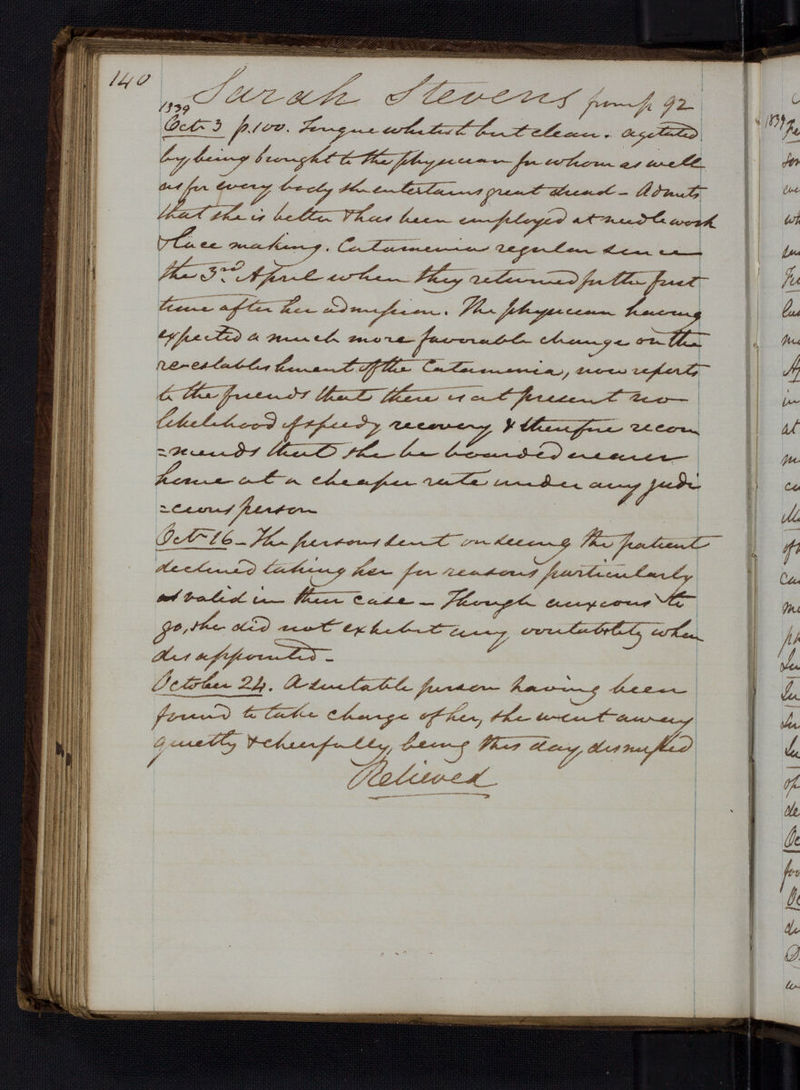 140
Sarah Stevens from p 92
1839
Oct 3 p. 100. Tongue whitish but clean. agitated
by being brought to the physician for whom as well
as for every body she entertains great dread - Admits
that she is better & has been employed at needle work
& lace making. Catamenia regular since
the 3rd April when they returned for the first
time after her admission. The physician having
expected a much more favorable change on the
re-establishment of the Catamenia, now reports
to the friends that there is at present no
likelihood of speedy recovery & therefore recom
=mends that she be boarded nearer
home at a cheaper rate under any judi
=cious person
Oct 16 - The persons sent on seeing the patient
declined taking her for reasons particularly
valid in their case - Though anxious to
go, she did not exhibit any when
disappointed -
October 24. A suitable person having been
found to take charge of her, she went away
quietly & cheerfully, being this day dismissed
Relieved
1839